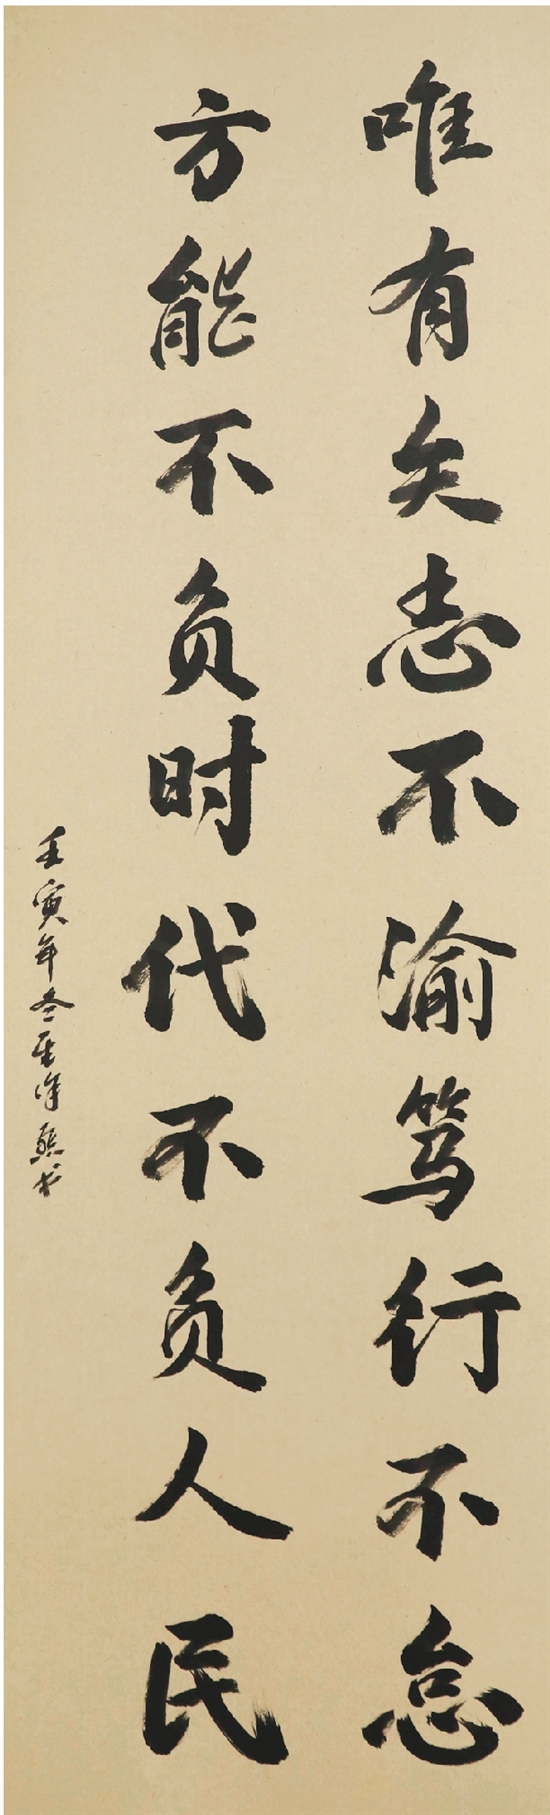 唯有矢志不渝笃行不怠
方能不负时代不负人民
壬寅年冬